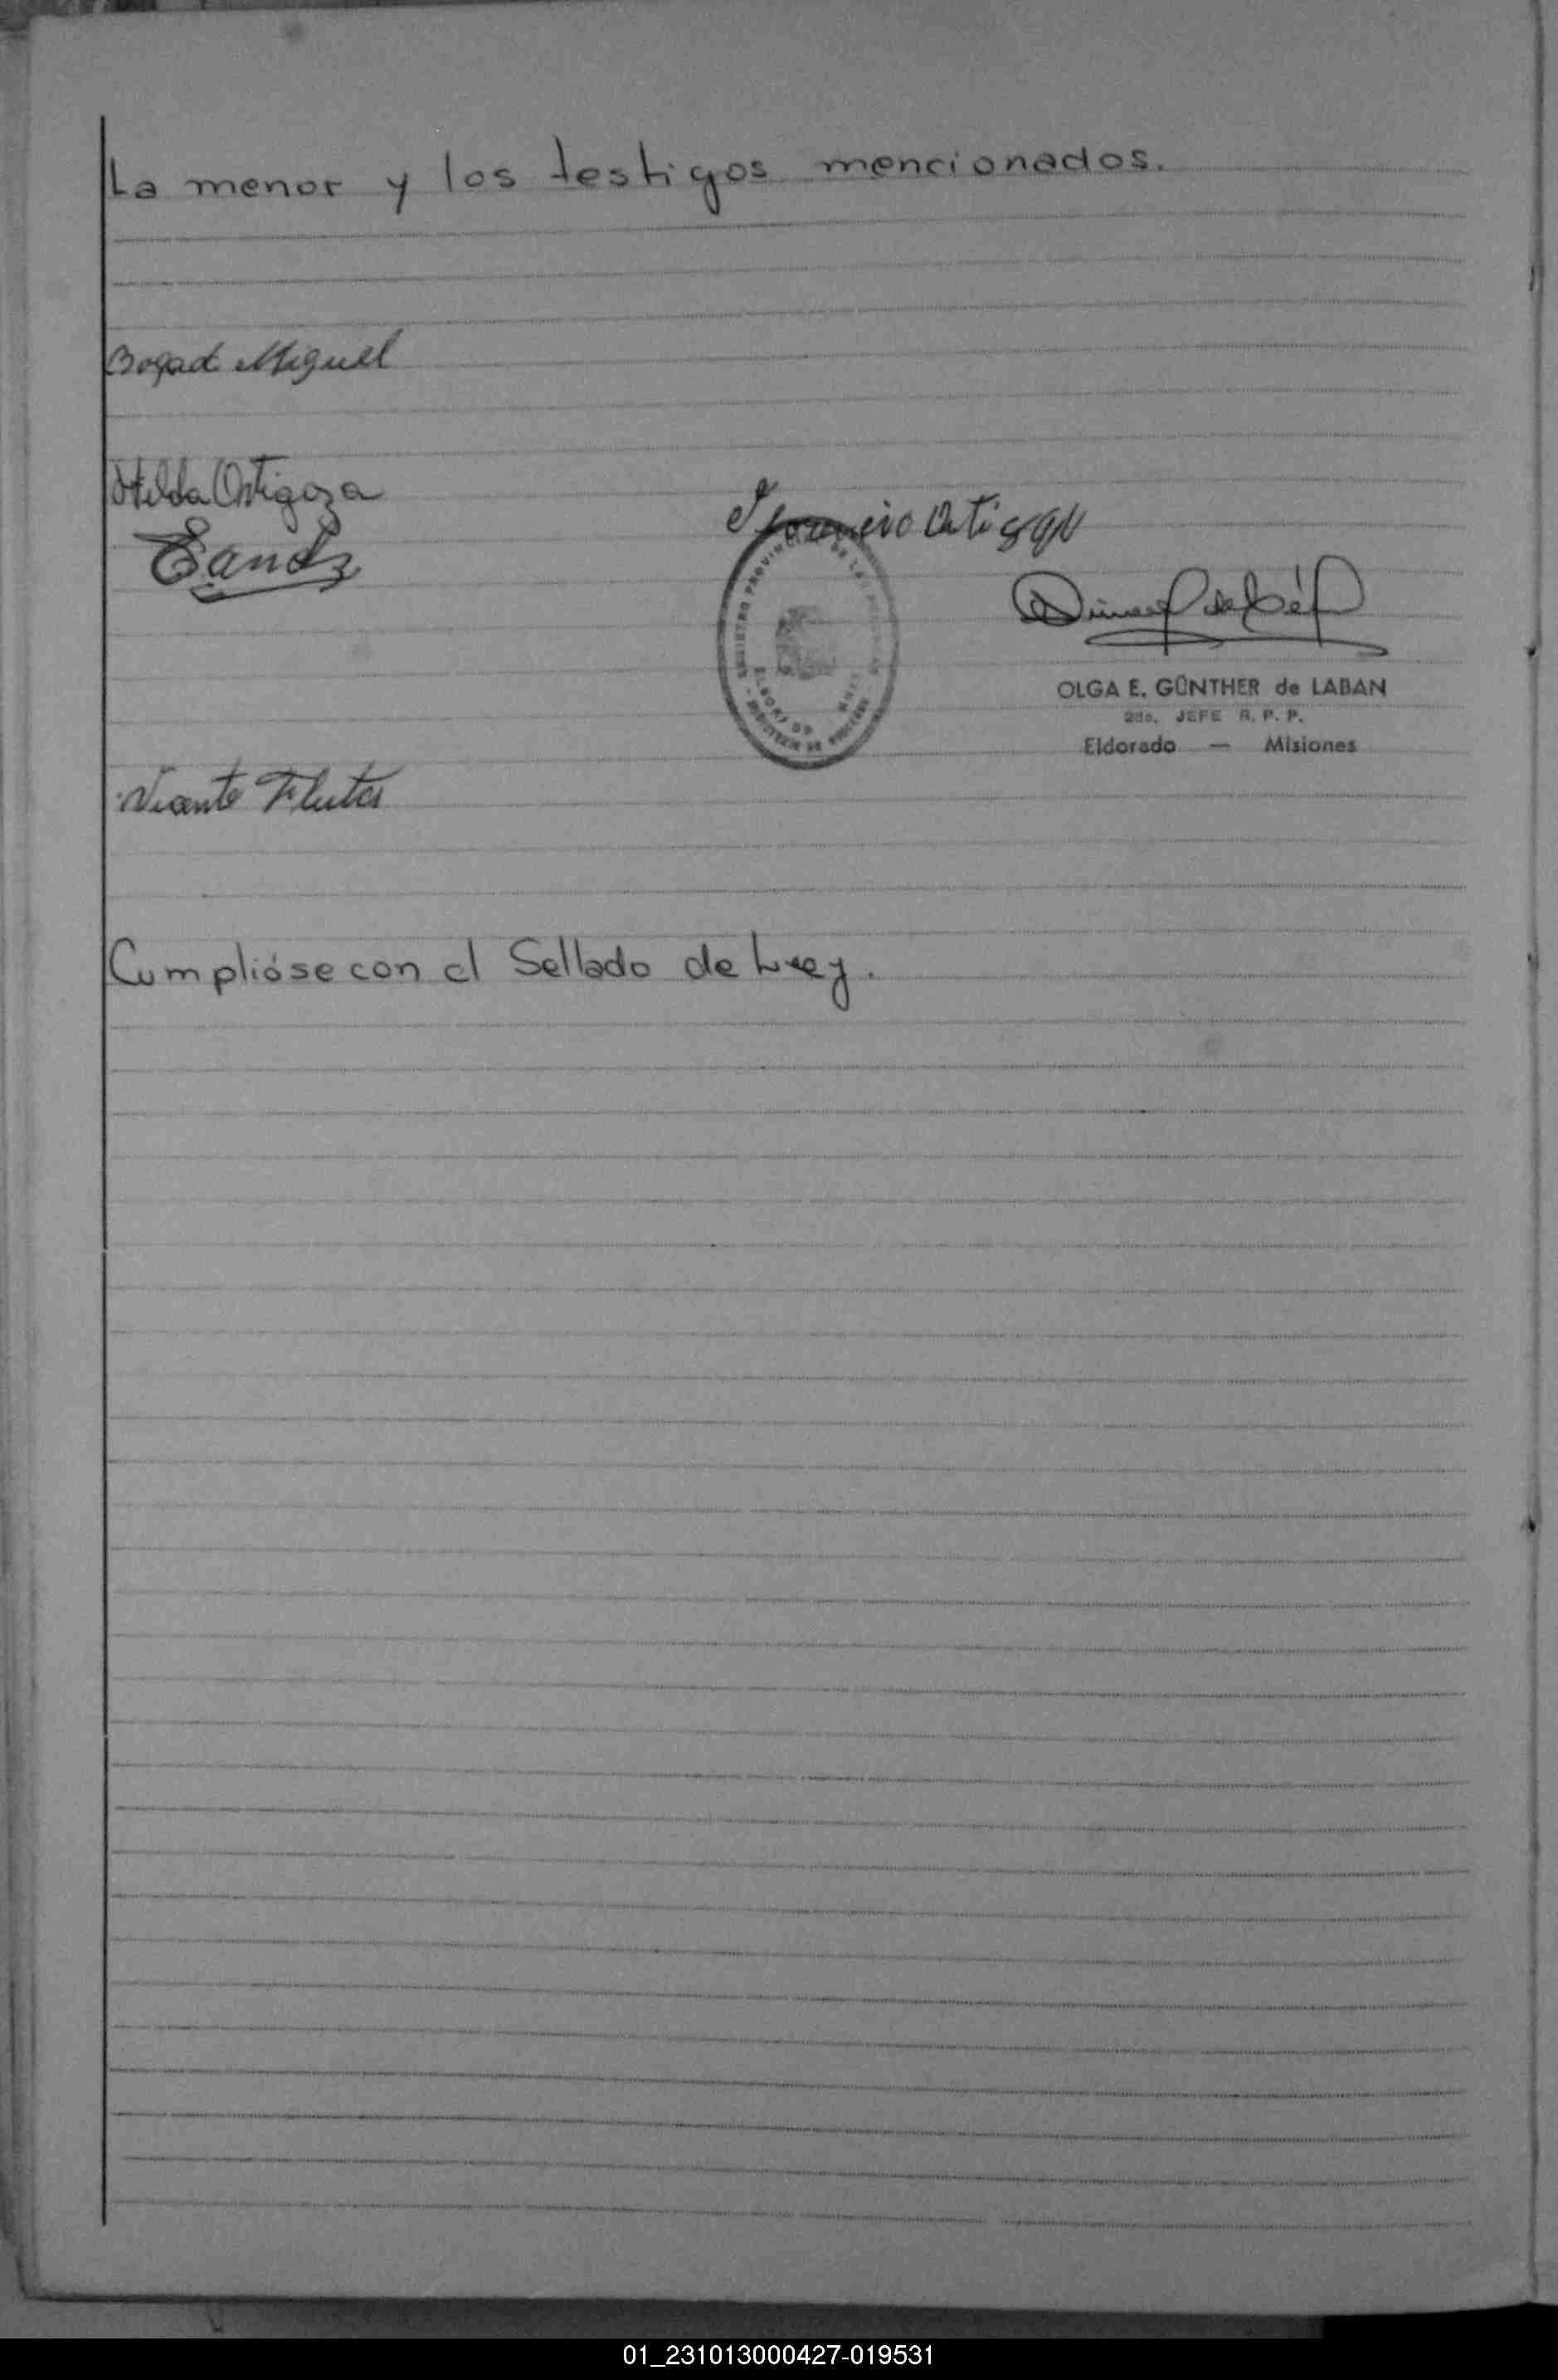 La menor y los testigos mencionados.
Bogad Miguel
Hilda Ortigoza
OLGA E. GÜNTHER de LABAN
2do. JEFE R. P. P.
Eldorado — Misiones
Vicente
Cumplióse con el Sellado de Ley.
01_231013000427-019531